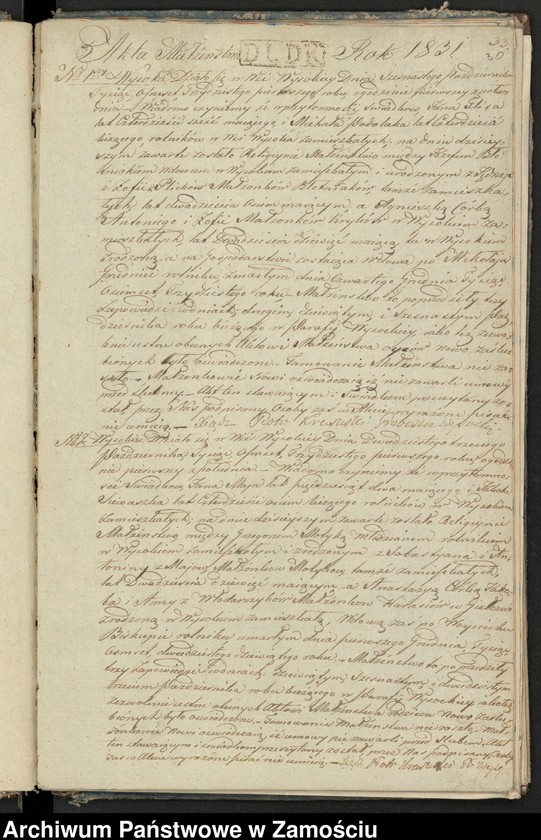 Akta Małżeństw DLDK Rok 1831
33
30
No 1. Wysokie Działo się w Wsi Wysokiey Dnia Szesnastego Października
Tysiąc Osmset Trzydziestego pierwszego roku o godzinie pierwszey z połu-
dnia Wiadomo czynimy iż w przytomności Świadków Jana
lat Czterdzieści sześć maiącego i Michała lat Czterdzieści
liczącego rolników w Wsi Wysokie zamieszkałych; na dniu dzisiey-
szym zawarte zostało Religiyne Małżeństwo między Józefem
Wdowcem w Wysokiem zamieszkałym i urodzonym z
i Zofii z Małżonków tamże zamieszka-
łych lat dwadzieścia Osiem maiącym, a Agnieszką Córką
Antoniego i Zofii Małżonków w Wysokiem za-
mieszkałych, lat Dwadzieścia dziewięć maiącą, tu w Wysokiem
zrodzoną, a na Gospodarstwie zostaiącą Wdową po Mikołaju
rolniku zmarłym dnia Czwartego Grudnia Tysiąc
Osmset Trzydziestego roku. Małżeństwo to poprzedziły trzy
Zapowiedzi w dniach, drugim dziewiątym i Szesnastym Paź-
dziernika roku bieżącego w Parafii Wysockiey iako też zezwo-
lenie ustne obecnych Aktowi Małżeństwa oyców nowo zaślu-
bionych było oświadczone. Tamowanie Małżeństwa nie za-
szło. Małżonkowie nowi oświadczaią iż nie zawarli umowy
przed ślubney. Akt ten stawaiącym i Świadkom przeczytany zo-
stał przez Nas podpisany Osoby zaś w Akcie wyrażone pisać
nie umieią. Xiądz Piotr
No 2. Wysokie Działo się w Wsi Wysokiey Dnia Dwudziestego trzeciego
Października Tysiąc Osmset Trzydziestego pierwszego roku, o godzi-
nie pierwszey z południa. Wiadomo czynimy iż w przytomno-
ści Świadków Jana Maja lat pięćdziesiąt dwa maiącego i
lat Czterdzieści siem liczącego rolników w Wysokiem
zamieszkałych; na dniu dzisieyszym zawarte zostało Religiyne
Małżeństwo między Grzegorzem Motyką Młodzianem rolnikiem
w Wysokiem zamieszkałym i zrodzonym z Sebastyana i An-
toniny z Majów Małżonków Motyków tamże zamieszkałych,
lat Dwadzieścia dziewięć maiącym, a Anastazyą Córką Jaku-
ba i Anny z Włodarczyków Małżonków
zrodzoną w Wysokiem zamieszkałą, Wdową zaś po Woyciechu
Biskupie rolniku umarłym dnia pierwszego Grudnia Tysiąc
Osmset dwudziestego dziewiątego roku. Małżeństwo to poprzedziły
trzy Zapowiedzi w dniach dziewiątym Szesnastym i dwudziestym
trzecim Października roku bieżącego w Parafii Wysockiey a
zezwolenie ustne obecnych Aktowi Małżeństwa rodziców Nowo zaślu-
bionych było oświadczone. Tamowanie Małżeństwa nie zaszło. Mał-
żonkowie Nowi oświadczaią iż umowy nie zawarli przed Ślubem. Akt
ten stawaiącym i świadkom przeczytany został przez Nas podpisany Osoby
zaś w Akcie wyrażone pisać nie umieią. Xiądz Piotr
Archiwum Państwowe w Zamościu